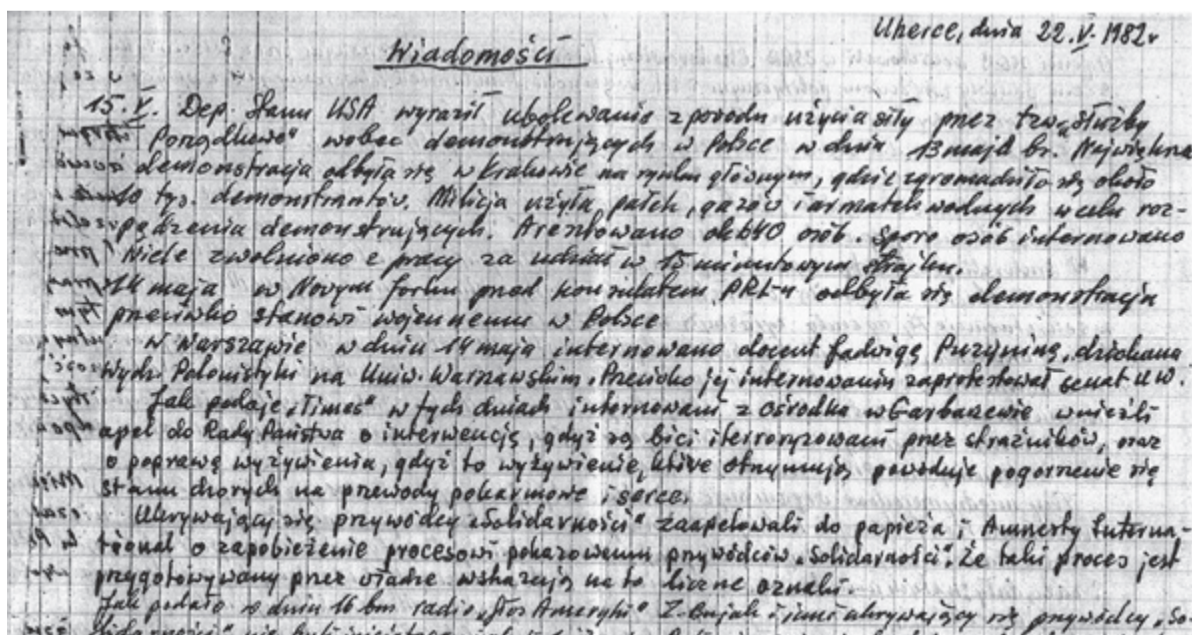 Uherce, dnia 22.V.1982r
Wiadomości
15.V. Dep. Stanu USA wyraził ubolewanie z powodu użycia siły przez tzw. „służby
Porządkowe" wobec demonstrujących w Polsce w dniu 13 maja br. Największa
demonstracja odbyła się w Krakowie na rynku głównym, gdzie zgromadziło się około
10 tys. demonstrantów. Milicja użyła pałek, gazów i armatek wodnych w celu roz-
pędzenia demonstrujących. Aresztowano ok. 640 osób. Sporo osób internowano
Wiele zwolniono z pracy za udział w 15 minutowym strajku.
14 maja w Novym Jorku przed konsulatem PRL-u odbyła się demonstracja
przeciwko stanowi wojennemu w Polsce
W Warszawie w dniu 14 maja internowano docent Jadwigę Puzyninę, dziekana
Wydz. Polonistyki na Uniw. Warszawskim. Przeciwko jej internowaniu zaprotestował senat UW.
Jak podaje „Times" w tych dniach internowani z ośrodka w Garbarzewie wnieśli
apel do Rady Państwa o interwencję, gdyż są bici i terroryzowani przez strażników, oraz
o poprawę wyżywienia, gdyż to wyżywienie, które otrzymują powoduje pogorszenie się
stanu chorych na przewody pokarmowe i serce.
Ukrywający się przywódcy „Solidarności" zaapelowali do papieża i Amnesty Interna-
tional o zapobieżenie procesowi pokazowemu przywódców „Solidarności". Że taki proces jest
przygotowywany przez władze wskazują na to liczne oznaki.
Jak podało w dniu 16 bm radio „Głos Ameryki" Z. Bujak i inni ukrywający się przywódcy „So-
lidarności" nie byli